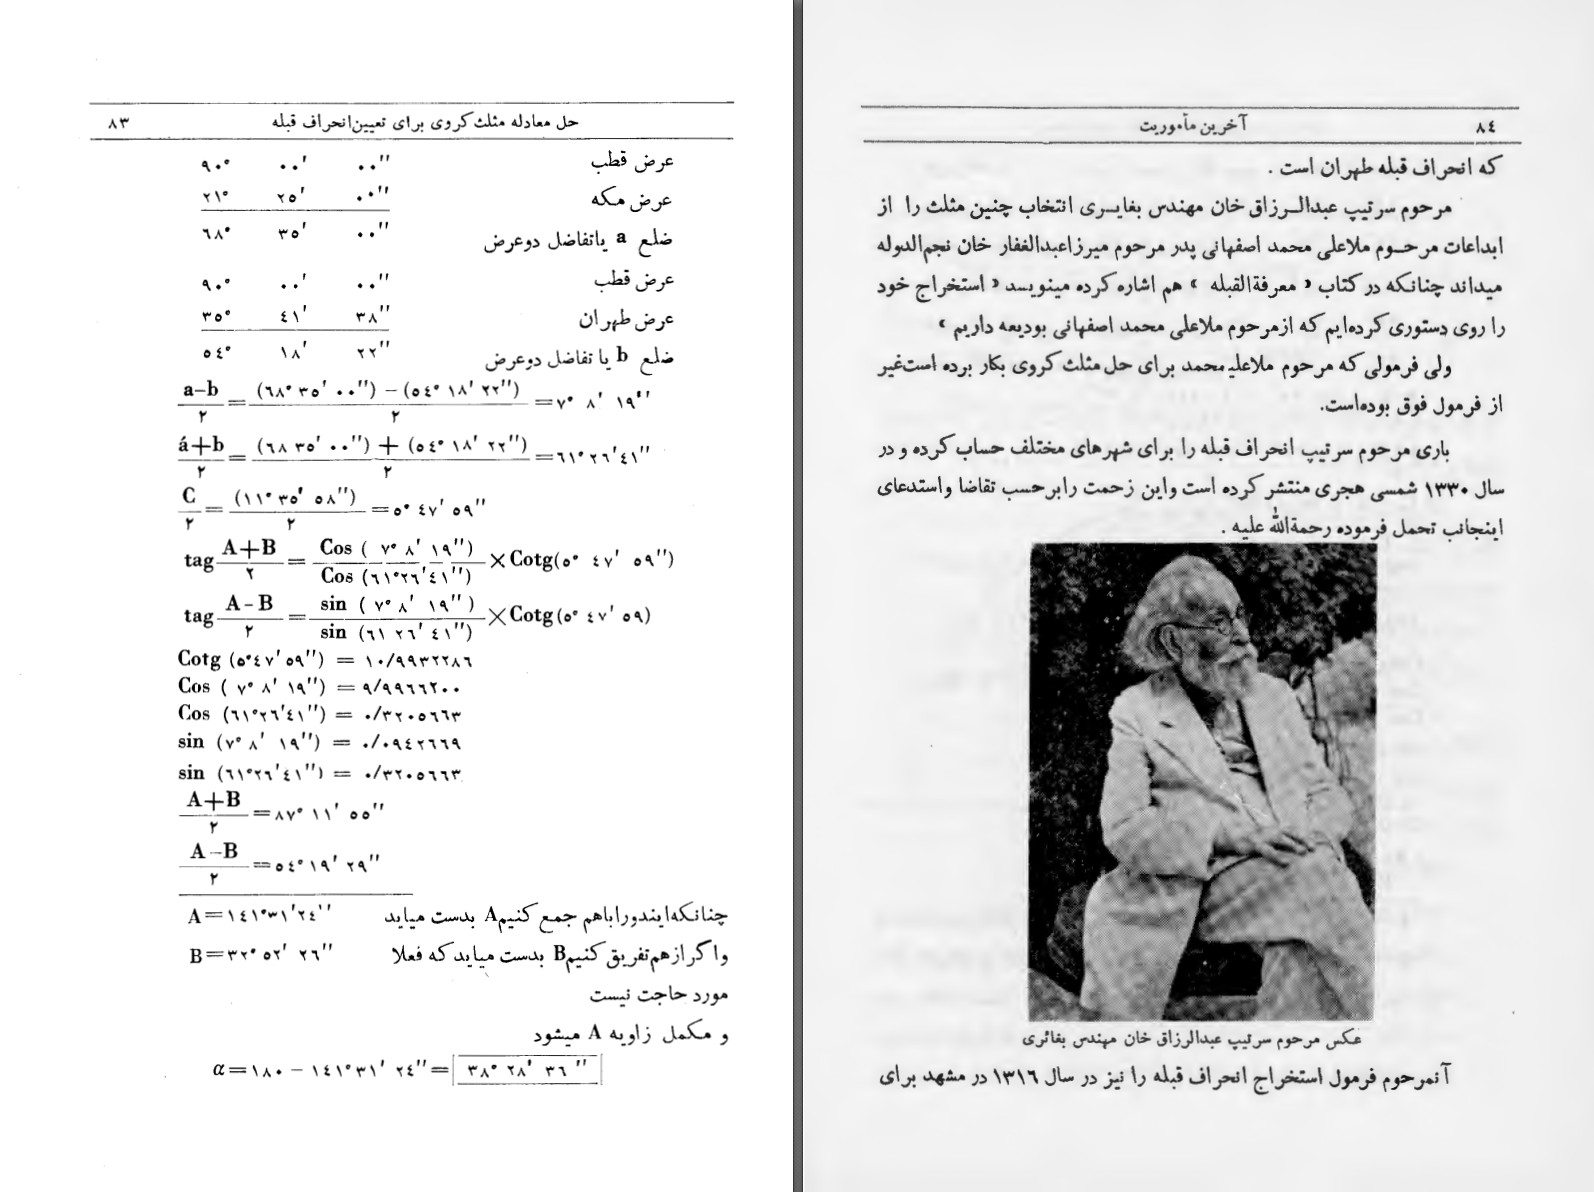 حل معادله مثلث کروی برای تعیین انحراف قبله ۸۳
عرض قطب ۹۰° ۰۰′ ۰۰″
عرض مکه ۲۱° ۲۵′ ۰۰″
ضلع a یا تفاضل دو عرض ۶۸° ۳۵′ ۰۰″
عرض قطب ۹۰° ۰۰′ ۰۰″
عرض طهران ۳۵° ۴۱′ ۳۸″
ضلع b یا تفاضل دو عرض ۵۴° ۱۸′ ۲۲″
(a-b)/۲ = ((۶۸° ۳۵′ ۰۰″) - (۵۴° ۱۸′ ۲۲″))/۲ = ۷° ۸′ ۱۹″
(a+b)/۲ = ((۶۸ ۳۵′ ۰۰″) + (۵۴° ۱۸′ ۲۲″))/۲ = ۶۱° ۲۶′ ۴۱″
C/۲ = (۱۱° ۳۵′ ۵۸″)/۲ = ۵° ۴۷′ ۵۹″
tag (A+B)/۲ = Cos (۷° ۸′ ۱۹″)/Cos (۶۱°۲۶′٤۱″) × Cotg(۵° ۴۷′ ۵۹″)
tag (A-B)/۲ = sin (۷° ۸′ ۱۹″)/sin (۶۱ ۲۶′ ۴۱″) × Cotg(۵° ۴۷′ ۵۹)
Cotg (۵°۴۷′۵۹″) = ۱۰/۹۹۳۲۲۸۶
Cos (۷° ۸′ ۱۹″) = ۹/۹۹۶۶۲۰۰
Cos (۶۱°۲۶′۴۱″) = ۰/۳۲۰۵۶۶۳
sin (۷° ۸′ ۱۹″) = ۰/۰۹۴۲۶۶۹
sin (۶۱°۲۶′۴۱″) = ۰/۳۲۰۵۶۶۳
(A+B)/۲ = ۸۷° ۱۱′ ۵۵″
(A-B)/۲ = ۵۴° ۱۹′ ۲۹″
چنانکه ایندو را باهم جمع کنیم A بدست میاید A=۱۴۱°۳۱′۲۴″
واگر از هم تفریق کنیم B بدست میاید که فعلا B=۳۲° ۵۲′ ۲۶″
مورد حاجت نیست
و مکمل زاویه A میشود
α=۱۸۰ - ۱۴۱°۳۱′ ۲۴″= ۳۸° ۲۸′ ۳۶″
۸۴ آخرین مأموریت
که انحراف قبله طهران است .
مرحوم سرتیپ عبدالرزاق خان مهندس بغایری انتخاب چنین مثلث را از
ابداعات مرحوم ملاعلی محمد اصفهانی پدر مرحوم میرزاعبدالغفار خان نجم‌الدوله
میداند چنانکه در کتاب « معرفة‌القبله » هم اشاره کرده مینویسد « استخراج خود
را روی دستوری کرده‌ایم که از مرحوم ملاعلی محمد اصفهانی بودیعه داریم »
ولی فرمولی که مرحوم ملاعلیمحمد برای حل مثلث کروی بکار برده است‌غیر
از فرمول فوق بوده‌است.
باری مرحوم سرتیپ انحراف قبله را برای شهرهای مختلف حساب کرده و در
سال ۱۳۳۰ شمسی هجری منتشر کرده است واین زحمت را برحسب تقاضا واستدعای
اینجانب تحمل فرموده رحمة‌الله علیه .
عکس مرحوم سرتیپ عبدالرزاق خان مهندس بغائری
آنمرحوم فرمول استخراج انحراف قبله را نیز در سال ۱۳۱۶ در مشهد برای